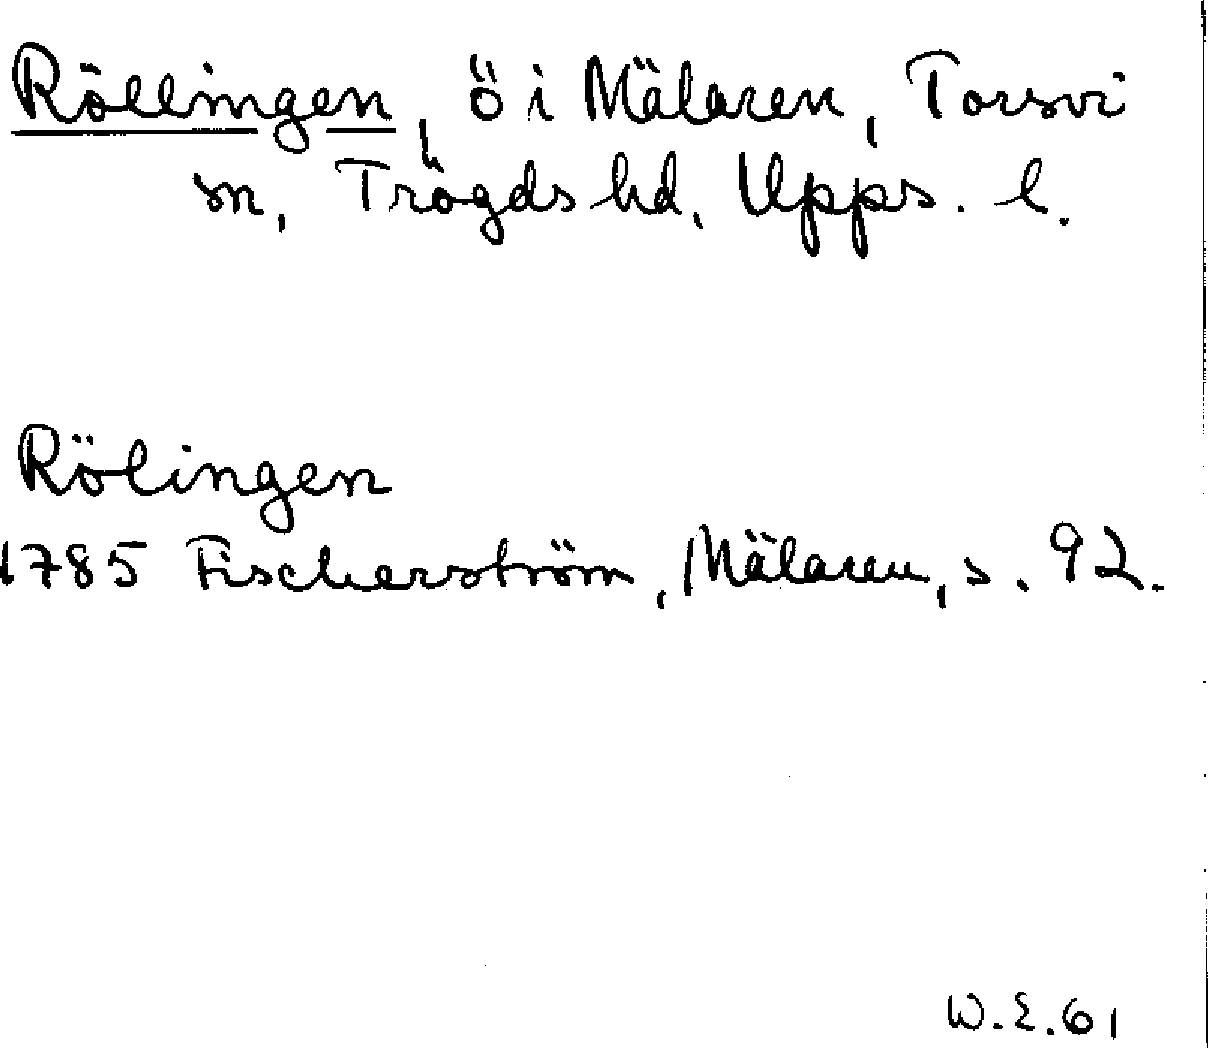 Röllingen, ö i Mälaren, Torsvi
sn, Trögds hd, Upps. l.
Rölingen
1785 Fischerström, Mälaren, s. 92.
W.E.61